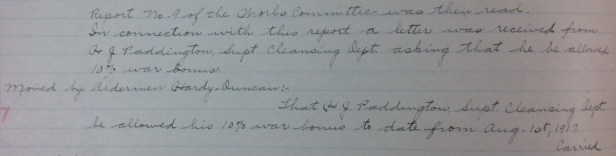 Report No. 9 of the Works Committee was then read.
In connection with this report a letter was received from
H J. Paddington, Supt Cleansing Dept. asking that he be allowed
10% war bonus.
Moved by Aldermen Hardy-Duncan:-
That H. J. Paddington, Supt. Cleansing Dept.
be allowed his 10% war bonus to date from Aug. 1st, 1917.
Carried